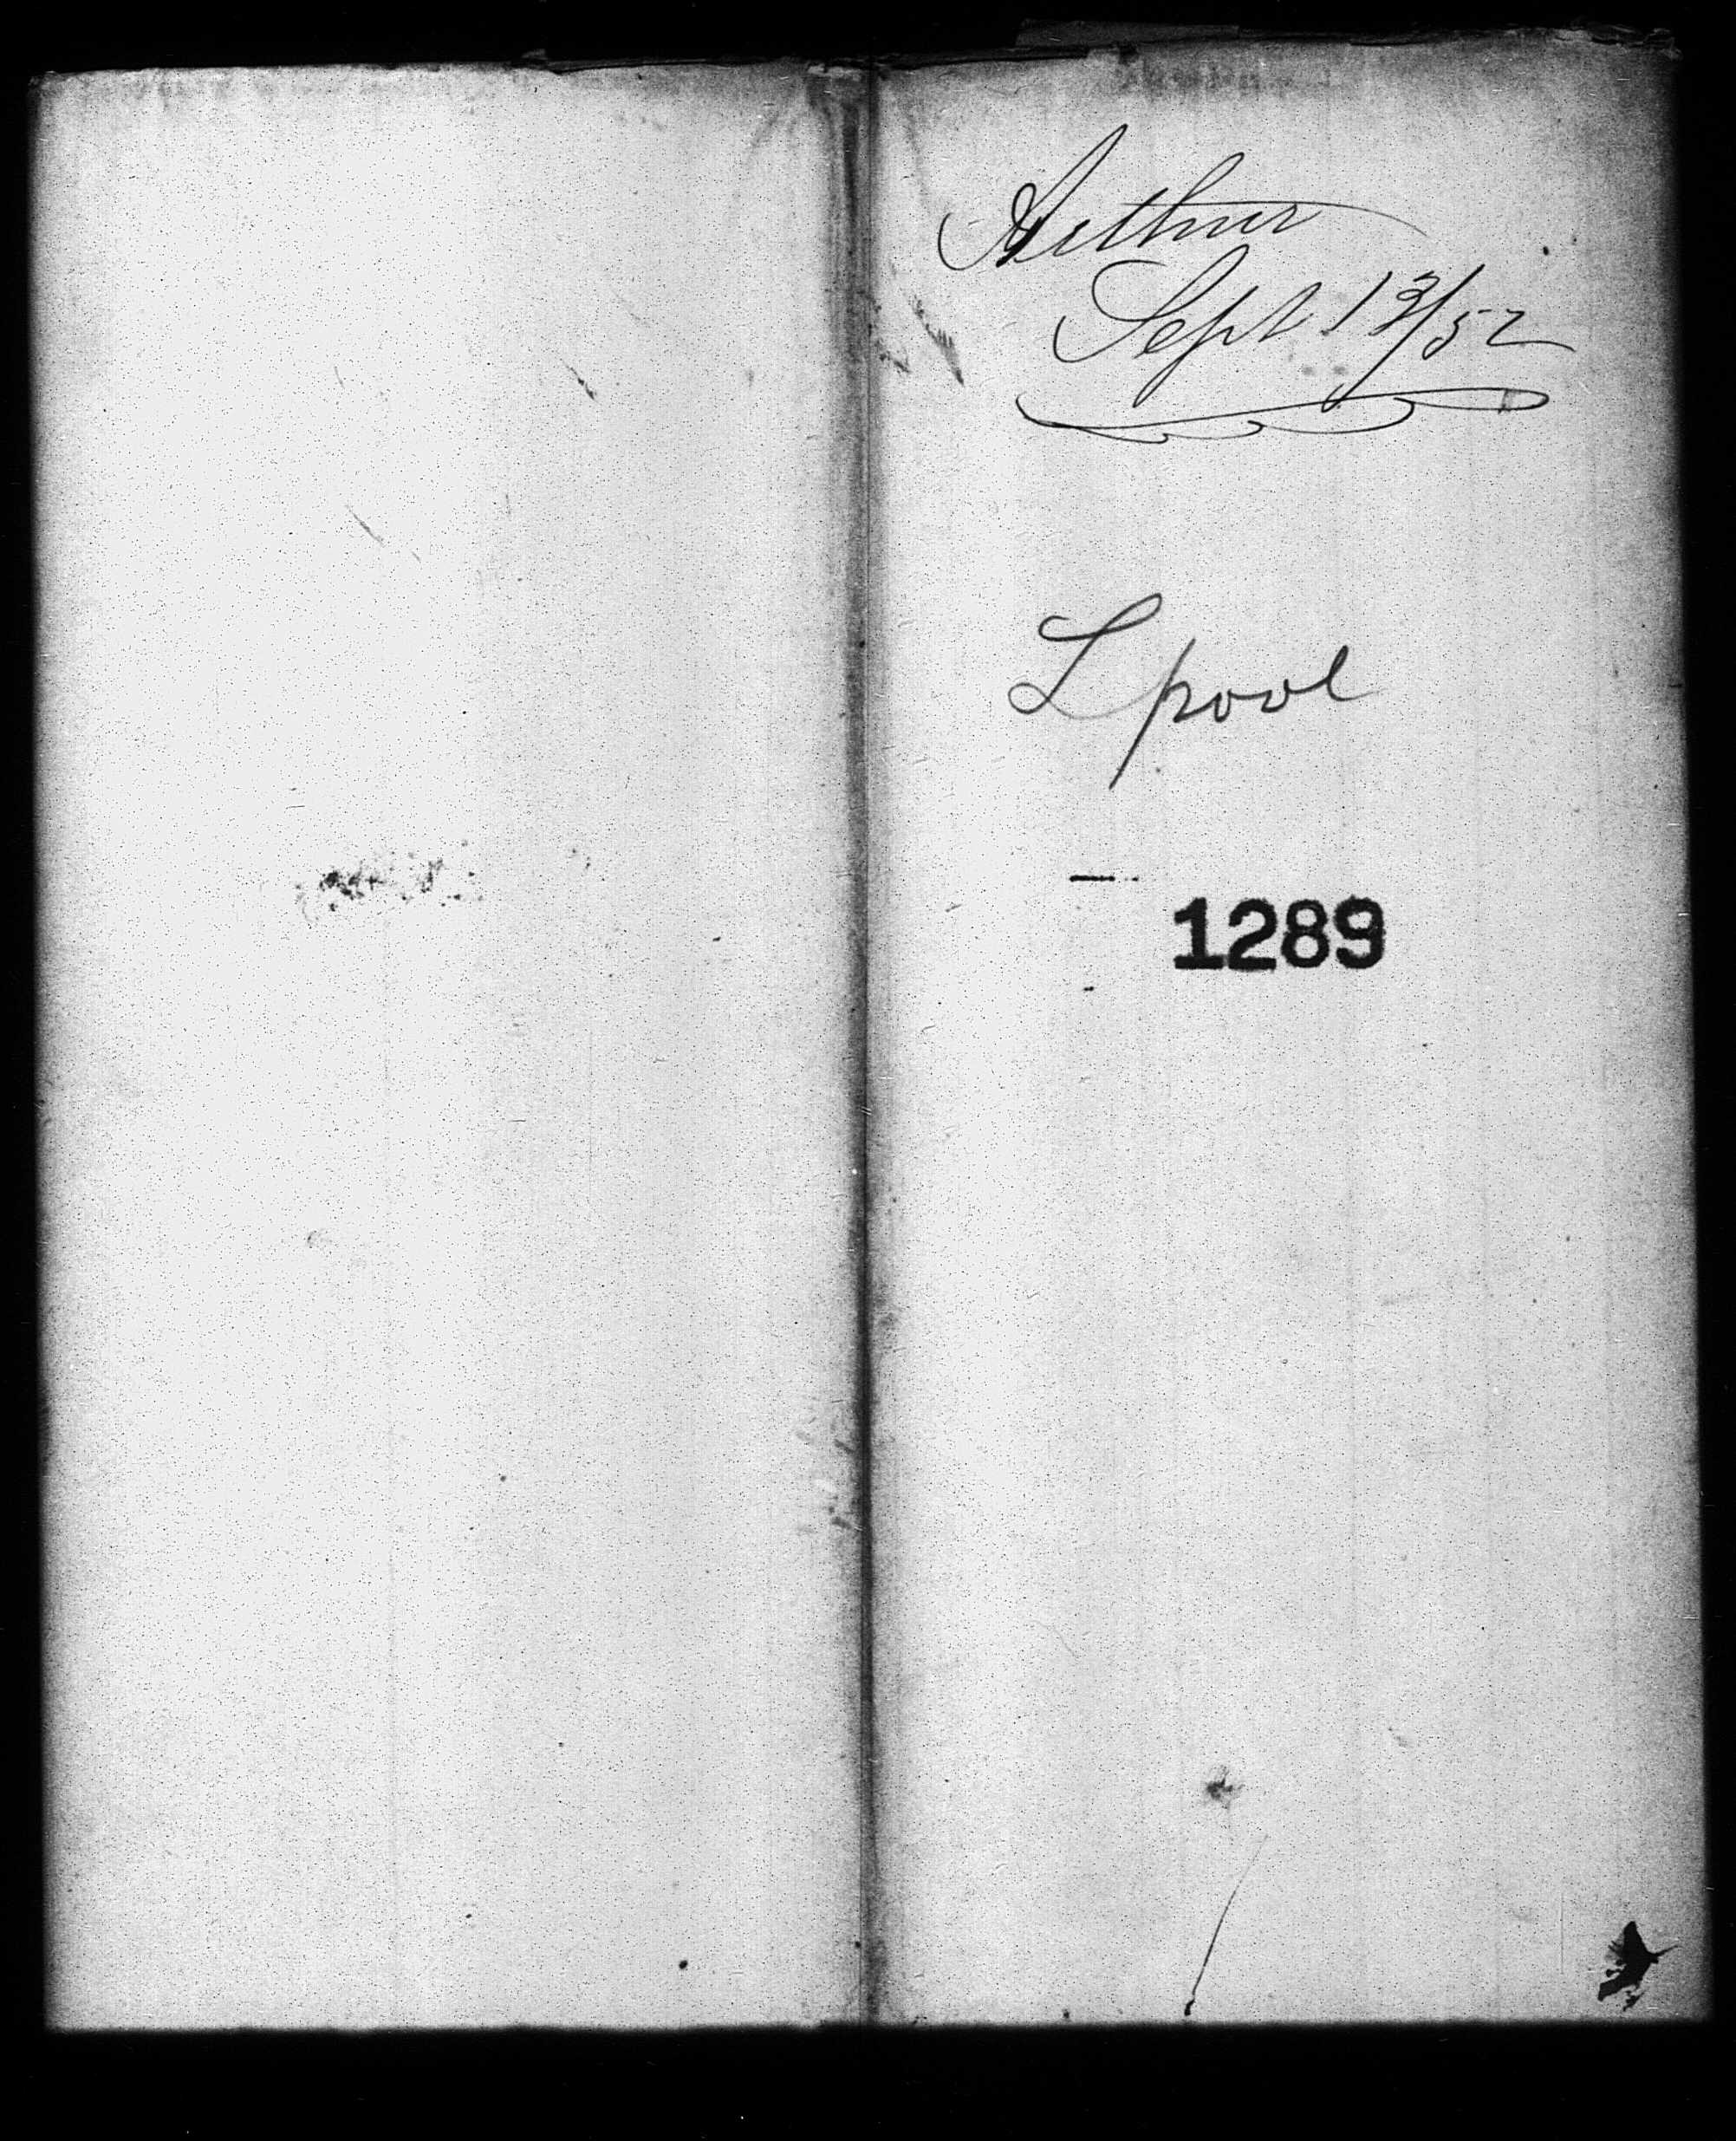 Arthur
Sept 13/52
L pool
1289